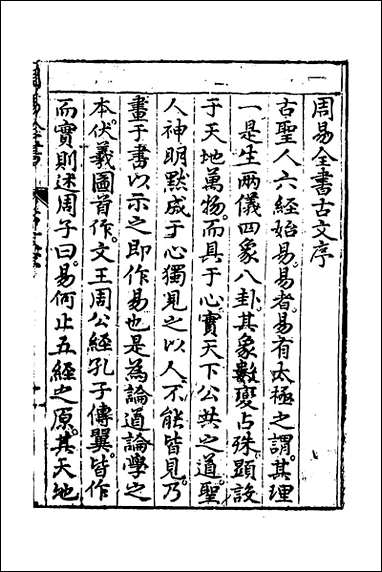 周易全書古文序
古聖人六經始易。易者。易有太極之謂。其理
一是生兩儀四象八卦。其象數變占殊。顯設
于天地萬物。而具于心。實天下公共之道。聖
人神明默成于心獨見之。以人不能皆見。乃
畫于書以示之。即作易也。是為論道論學之
本。伏羲圖首作。文王周公經孔子傳翼。皆作
而實則述。周子曰。易何止五經之原。其天地